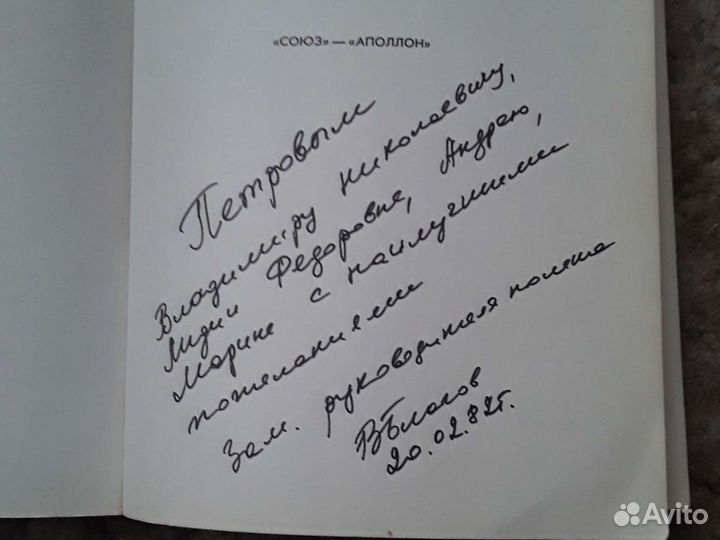 «СОЮЗ» — «АПОЛЛОН»
Петровым
Владимиру Николаевичу,
Лидии Федоровне, Андрею,
Марине с наилучшими
пожеланиями
Зам. руководителя полета
ВБлагов
20.02.82г.
Avito